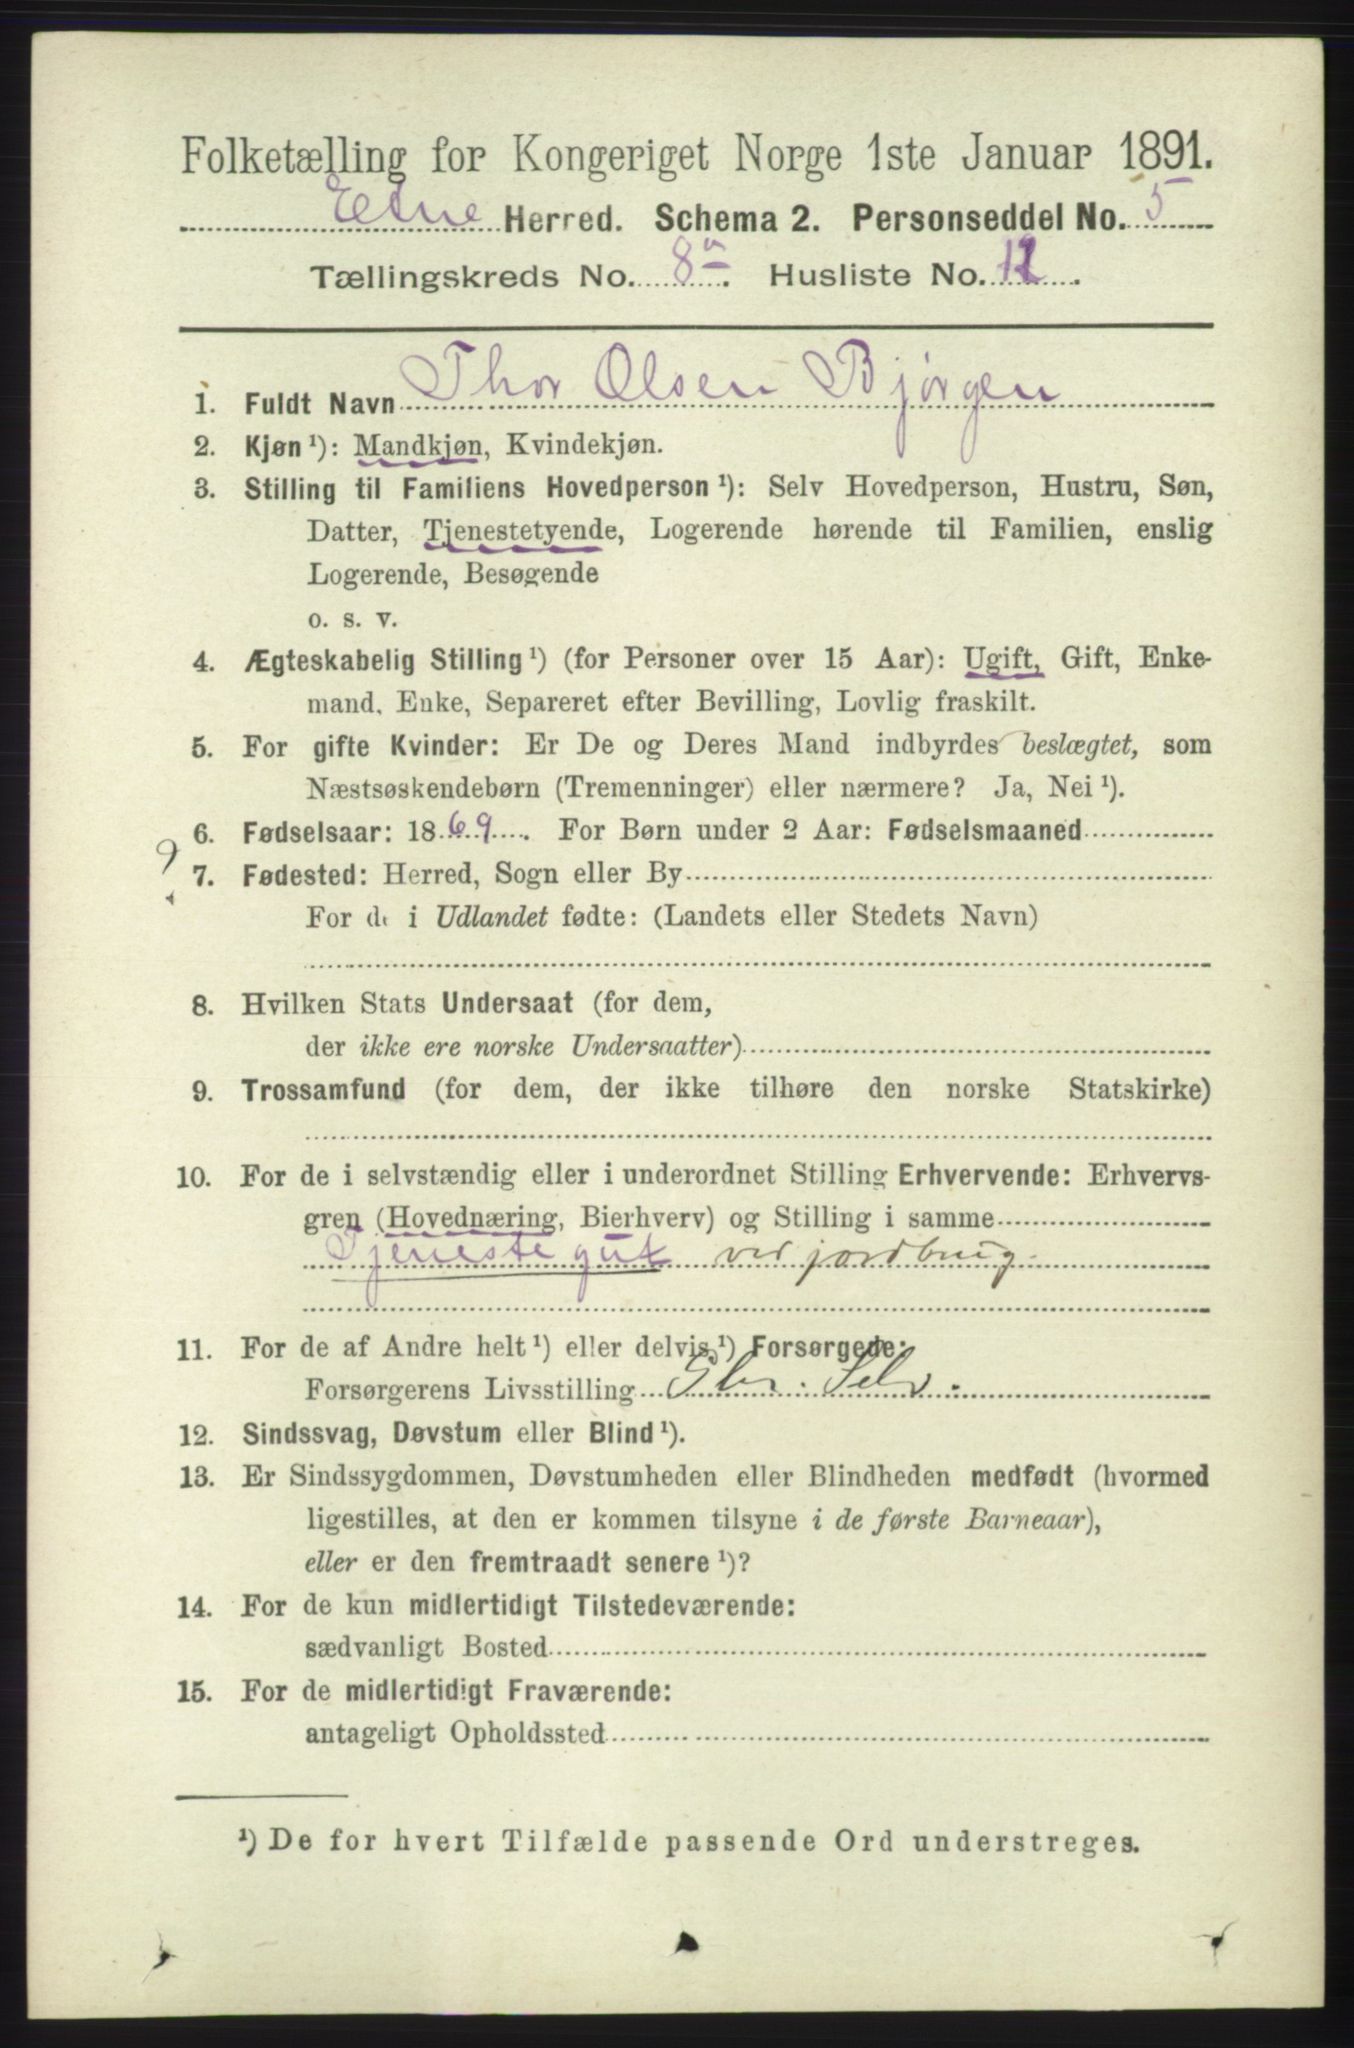 Folketælling for Kongeriget Norge 1ste Januar 1891.
Etne Herred. Schema 2. Personseddel No. 5
Tællingskreds No. 8a. Husliste No. 12.
1. Fuldt Navn Thor Olsen Bjørgen
2. Kjøn ¹): Mandkjøn, Kvindekjøn.
3. Stilling til Familiens Hovedperson ¹): Selv Hovedperson, Hustru, Søn,
Datter, Tjenestetyende, Logerende hørende til Familien, enslig
Logerende, Besøgende
o. s. v.
4. Ægteskabelig Stilling ¹) (for Personer over 15 Aar): Ugift, Gift, Enke-
mand, Enke, Separeret efter Bevilling, Lovlig fraskilt.
5. For gifte Kvinder: Er De og Deres Mand indbyrdes beslægtet, som
Næstsøskendebørn (Tremenninger) eller nærmere? Ja, Nei ¹).
6. Fødselsaar: 1869. For Børn under 2 Aar: Fødselsmaaned
7. Fødested: Herred, Sogn eller By
For de i Udlandet fødte: (Landets eller Stedets Navn)
8. Hvilken Stats Undersaat (for dem,
der ikke ere norske Undersaatter)
9. Trossamfund (for dem, der ikke tilhøre den norske Statskirke)
10. For de i selvstændig eller i underordnet Stilling Erhvervende: Erhvervs-
gren (Hovednæring, Bierhverv) og Stilling i samme
Tjenestegut ved jordbrug.
11. For de af Andre helt ¹) eller delvis ¹) Forsørgede:
Forsørgerens Livsstilling Selv.
12. Sindssvag, Døvstum eller Blind ¹).
13. Er Sindssygdommen, Døvstumheden eller Blindheden medfødt (hvormed
ligestilles, at den er kommen tilsyne i de første Barneaar),
eller er den fremtraadt senere ¹)?
14. For de kun midlertidigt Tilstedeværende:
sædvanligt Bosted
15. For de midlertidigt Fraværende:
antageligt Opholdssted
¹) De for hvert Tilfælde passende Ord understreges.